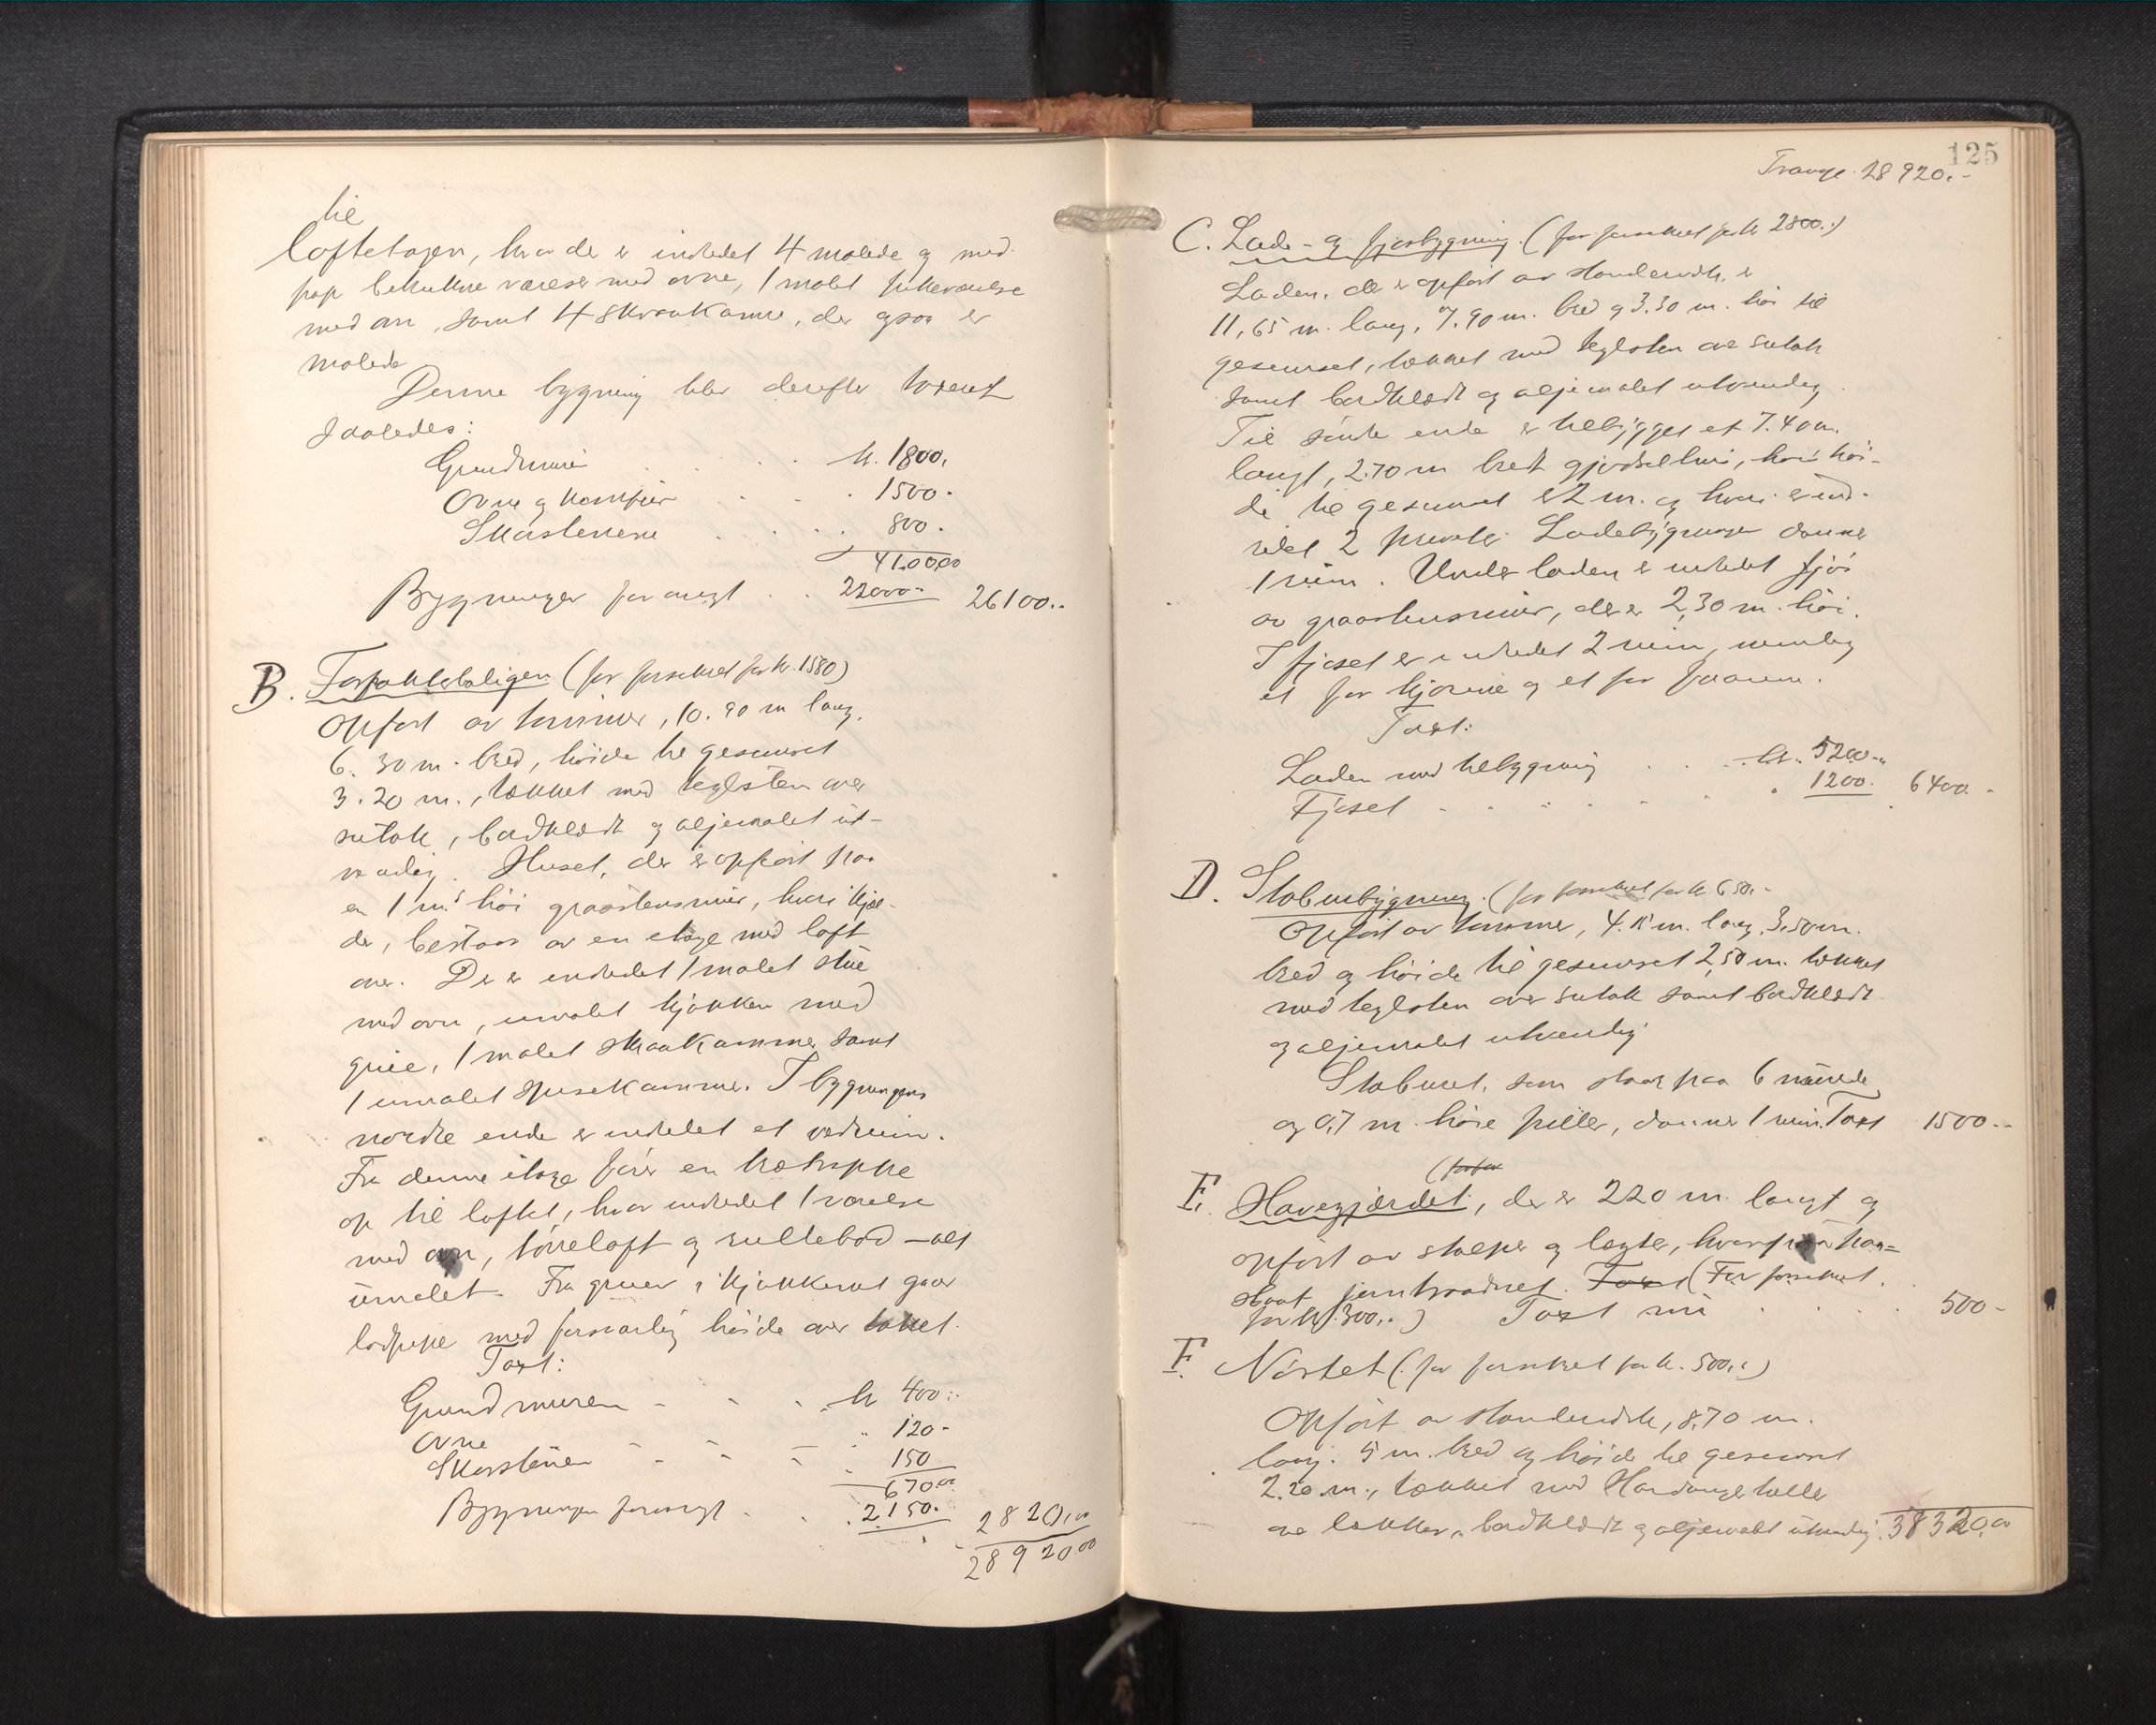 til
loftetagen, hvor der er indredet 4 malede og med
pap betrukne værelser med ovne, 1 malet pikeværelse
med ovn, samt 4 skraakamre, der ogsaa er
malede
Denne bygning blev derefter taxeret
saaledes:
Grundmur . . . . kr. 1800,
Ovne og komfur . . . 1500.
Skorstenene . . . 800.
4100.00
Bygningen forøvrigt . . 22000.- 26100..
B. Forpakterboligen (før forsikret for kr. 1580)
opført av tømmer, 10.90 m lang,
6.30 m. bred, høide til gesimset
3.20 m., tækket med teglsten over
sutak, bordklædt og oljemalet ut-
vendig. Huset, der er opført paa
en 1 m. høi graastensmur, hvori kjæl-
der, bestaar av en etage med loft
over. Der er indredet 1 malet stue
med ovn, umalet kjøkken med
grue, 1 malet skraakammer samt
1 umalet spisekammer. I bygningens
nordre ende er indredet et vedrum.
Fra denne etage fører en trætrappe
op til loftet, hvor indredet 1 værelse
med ovn, tørreloft og rullebod - alt
umalet. Fra gruen i kjøkkenet gaar
lodpipe med forsvarlig høide over taket.
Taxt:
Grundmuren - - - kr 400:-
Ovne " 120-
Skorstenen - - - - 150
670.00
Bygningen forøvrigt - . . 2150.- 2820,00
28920.00
125
Transp. 28920.-
C. Lade- og fjøsbygning. (før forsikret for kr 2800.-)
Laden, der er opført av standerverk, er
11,65 m. lang, 7.90 m. bred og 3.30 m. høi til
gesimset, tækket med teglsten over sutak
samt bordklædt og oljemalet utvendig.
Til søndre ende er tilbygget et 7.40 m.
langt, 2.70 m bredt gjødselhus, hvis høi-
de til gesimset er 2 m. og hvori er ind-
redet 2 priveter. Ladebygningen danner
1 rum. Under laden er indredet fjøs
av graastensmur, der er 2,30 m. høi.
I fjøset er indredet 2 rum, nemlig
et for kjørene og et for faarene.
Taxt:
Laden med tilbygning . . . kr. 5200-"
Fjøset - - - - - - - 1200. 6400.-
D. Stabursbygning. (før forsikret for kr. 650.-
Opført av tømmer, 4.15 m. lang, 3,50 m.
bred og høide til gesimset 2,50 m. tækket
med teglsten over sutak samt bordklædt
og oljemalet utvendig
Staburet, som staar paa 6 murede
og 0,7 m. høie piller, danner 1 rum. Taxt 1500.-
(før for
E. Havegjærdet, der er 220 m. langt og
opført av stolper og lægter, hvorpaa paa-
slaat jerntraadnet. Taxt (Før forsikret
for kr. 300,-) Taxt nu . . . . 500-
F. Nøstet (før forsikret for kr. 500,-)
Opført av standerverk, 8,70 m.
lang. 5 m. bred og høide til gesimset
2.20 m., tækket med Hardangerheller
over lækter, bordklædt og oljemalt utvendig. 38320,00